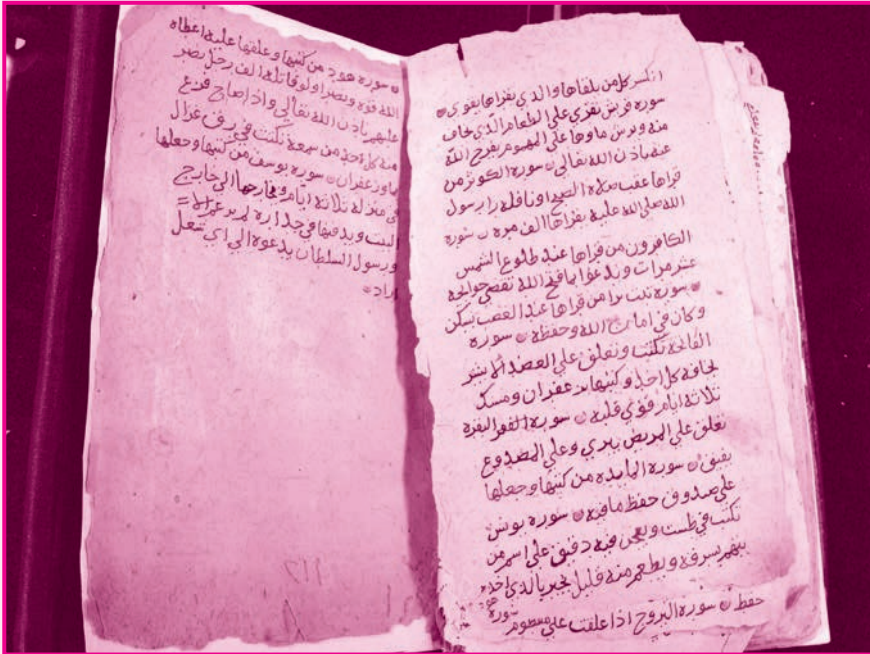 انكسر كل من يلقاها والذي يقراها يقوي ۞
سورة قريش تقري علي الطعام الذي يخاف
منه ويرش ماوها علي المهموم يفرج الله
عنه باذن الله تعالي ۞ سورة الكوثر من
قراها عقب صلاة الصبح او نافلة را رسول
الله صلي الله عليه يقراها الف مره ۞ سورة
الكافرون من قراها عند طلوع الشمس
عشر مرات ويدعوا بما فتح الله تقضي حوايجه
۞ سورة تبت يدا من قراها عند الغضب سكن
وكان في امان الله وحفظه ۞ سورة
الفاتحة تكتب وتعلق علي العضد الايسر
يخافه كل احد وكتبها بزعفران ومسك
ثلاثة ايام قوي قلبه ۞ سورة البقرة
تعلق علي المريض يبري وعلي المصدوع
يفيق ۞ سورة المايده من كتبها وجعلها
علي صندوق حفظ ما فيه ۞ سورة يونس
تكتب في طست ويعجن فيه دقيق علي اسم من
يتهم بسرقة ويطعم منه قليل يخبر بالذي اخذه
حفظ ۞ سورة البروج اذا علقت علي مفطوم سورة
۞ سورة هود من كتبها وعلقها عليه اعطاه
الله قوة ونصرا ولو قاتله الف رجل نصر
عليهم باذن الله تعالي واذا صاح فزع
منه كل احد من سمعه تكتب في رق غزال
وزعفران ۞ سورة يوسف من كتبها وجعلها
في منزله ثلاثة ايام وخارجها الي خارج
البيت ويدفنها في جداره لم يدر
ورسول السلطان يدعوه الي اي شغل
اراد ۞